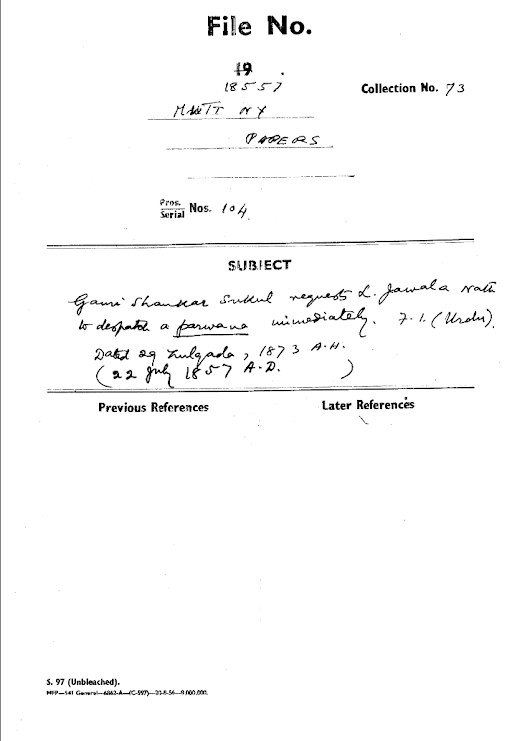 File No.
19
1857
Collection No. 73
MUTINY
PAPERS
Pros.
Serial Nos. 104
SUBJECT
Gauri Shankar Sukul requests L. Jawala Nath
to despatch a parwana immediately. F.1. (Urdu).
Dated 29 Zulqada, 1873 A.H.
(22 July 1857 A.D. )
Previous References
Later References
S. 97 (Unbleached).
MFP—541 General—6862-A—(C-597)—20-8-56—8,000,000.